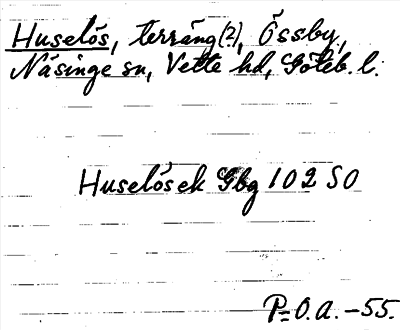 Huselös, terräng (2), Össby,
Näsinge sn, Vette hd, Göteb. l.
Huselösek Gbg 102 SO
P=O.A. -55.